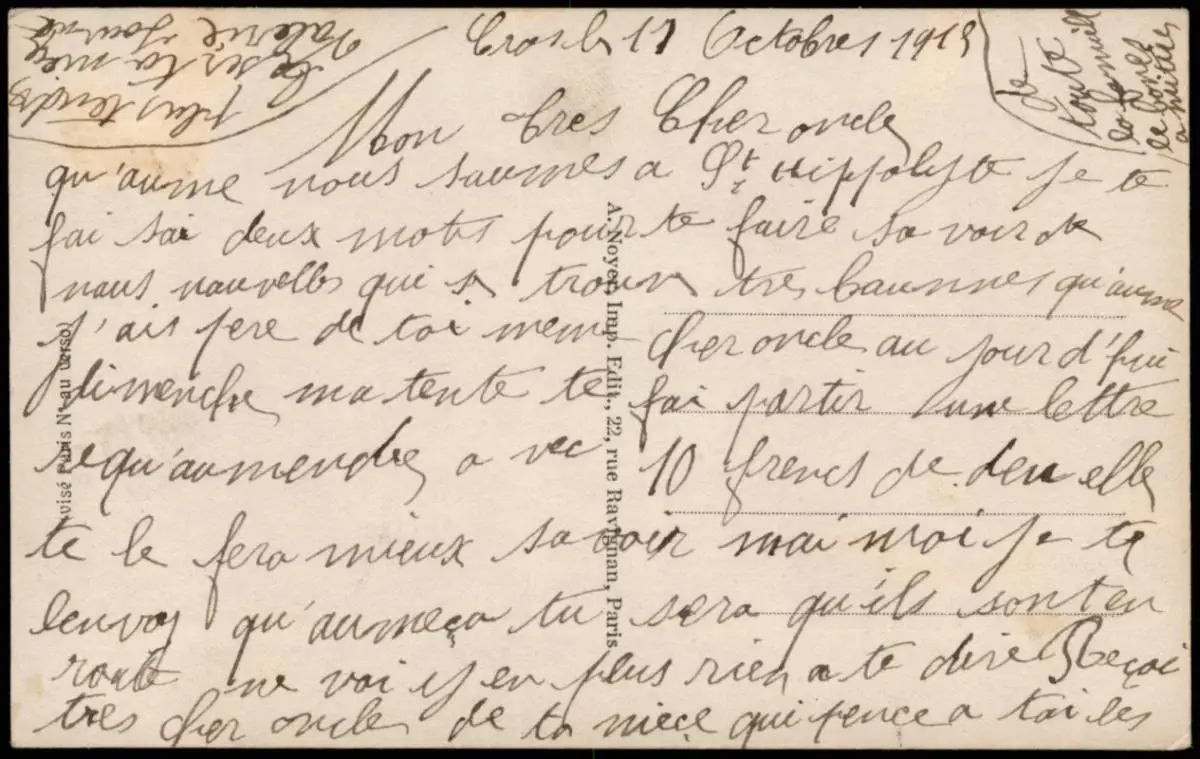 Cros le 17 Octobres 1915
Mon tres Cher oncle
qu'aume nous saumes a St Hippolyte je te
fai sai deux mots pour te faire sa voir de
nous nauvelles qui se trouve tres baunnes qu'aume
j'ais pere de toi meme cher oncle au jour d'hui
dimenche ma tente te fai partir une lettre
requ'aumendes a vec 10 frencs de den elle
te le fera mieux savoir mai moi je te
lenvoy qu'aumeça tu sera qu'ils sont en
route ne voi y en plus rien a te dire Reçoi
tres cher oncle de ta niece qui pence a toi les
plus tendre
baiser ta niece
Valerie
de
toute
la famille
le bones
amitiés
A. Noyer, Imp. Edit., 22, rue Ravignan, Paris
visé Paris N° au verso)